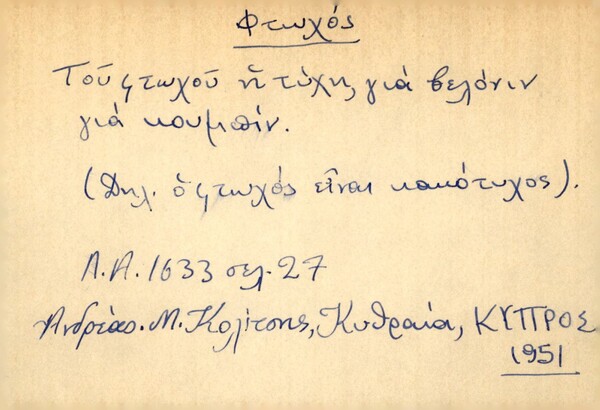 Φτωχός
Τοῦ φτωχοῦ ἡ τύχη, γιά βελόνιν
γιά κουμπίν.
(Δηλ. ὁ φτωχός εἶναι κακότυχος).
Λ.Α. 1633 σελ. 27
Ἀνδρέας Μ. Κολίτσης, Κυθραία, ΚΥΠΡΟΣ
1951